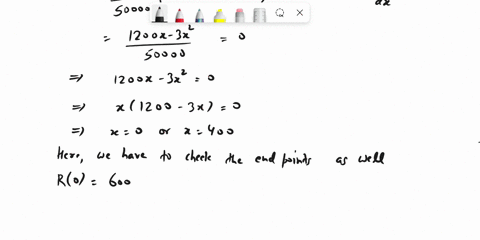 50000 dx
= 1200x - 3x² / 50000 = 0
⇒ 1200x - 3x² = 0
⇒ x (1200 - 3x) = 0
⇒ x = 0 or x = 400
Here, we have to check the end points as well
R(0) = 600